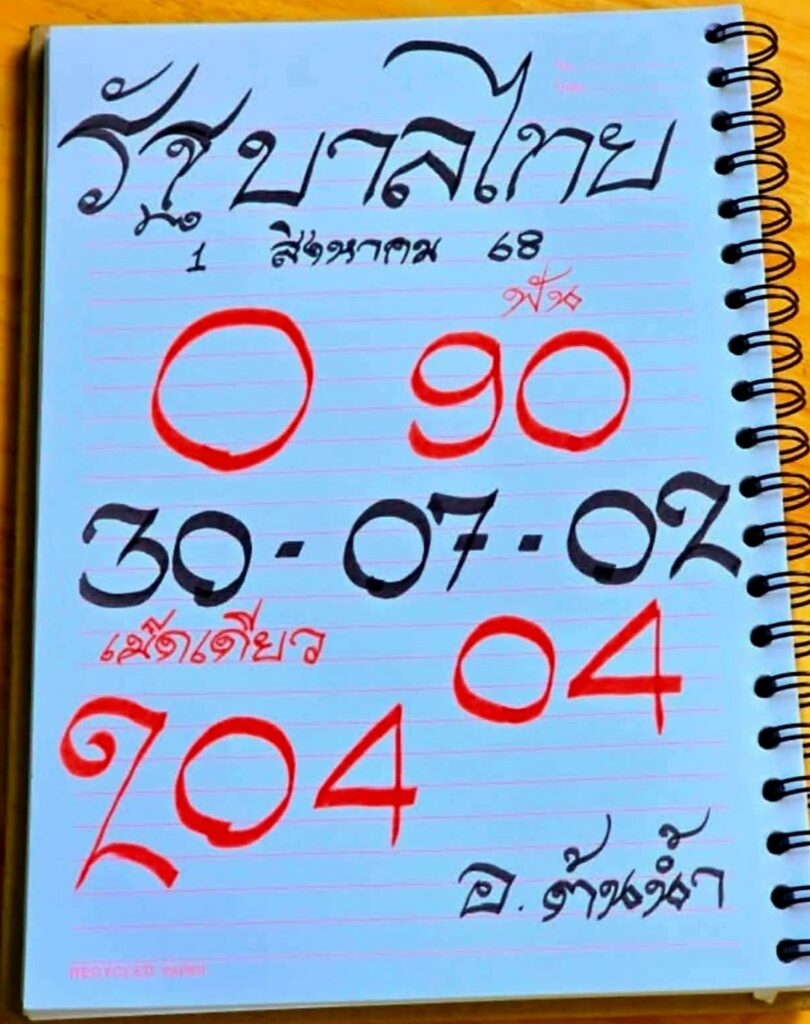 รัฐบาลไทย
1 สิงหาคม 68
ฟัน
0 90
30-07-02
เม็ดเดียว
04
204
อ.ต้นน้ำ
RECYCLED PAPER